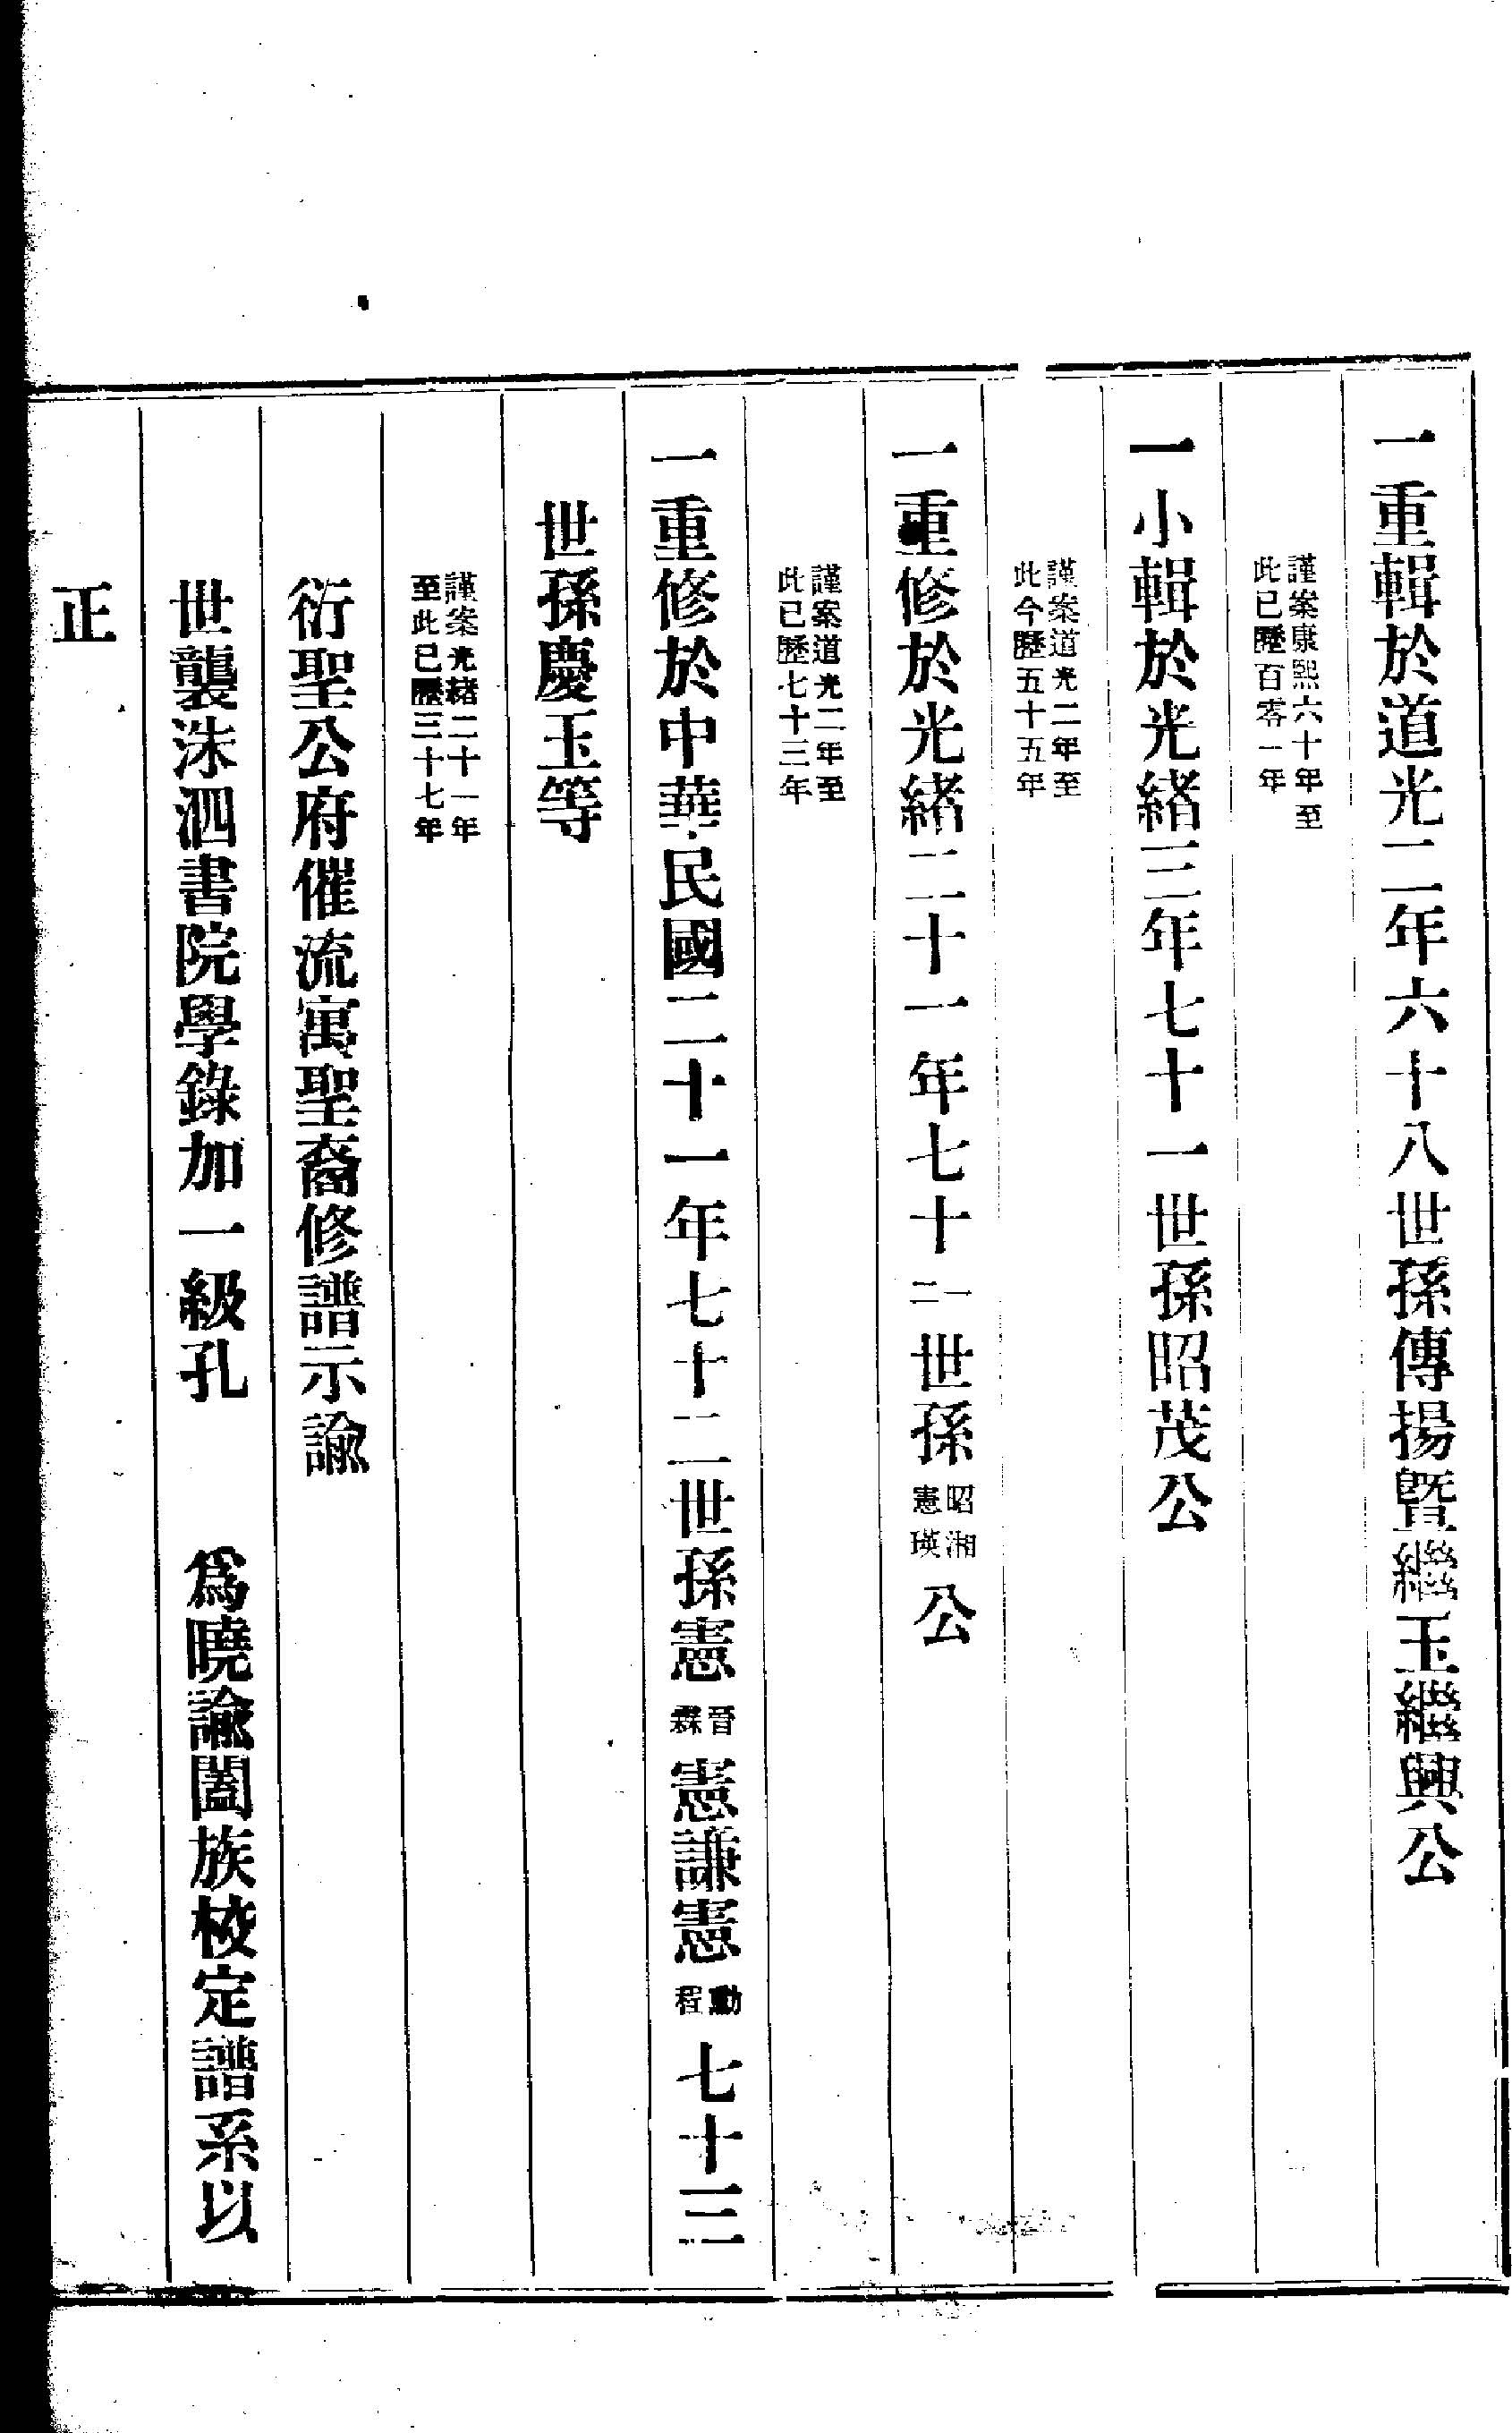 一重輯於道光二年六十八世孫傳揚暨繼玉繼興公
謹案康熙六十年至
此已歷百零一年
一小輯於光緒三年七十一世孫昭茂公
謹案道光二年至
此今歷五十五年
一重修於光緒二十一年七十一二世孫昭湘憲瑛公
謹案道光二年至
此已歷七十三年
一重修於中華民國二十一年七十二世孫憲晉霖憲謙憲勳程七十三
世孫慶玉等
謹案光緒二十一年
至此已歷三十七年
衍聖公府催流寓聖裔修譜示諭
世襲洙泗書院學錄加一級孔　　爲曉諭闔族校定譜系以
正